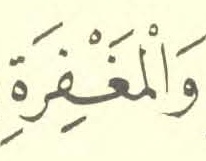 وَالْمَغْفِرَةِ